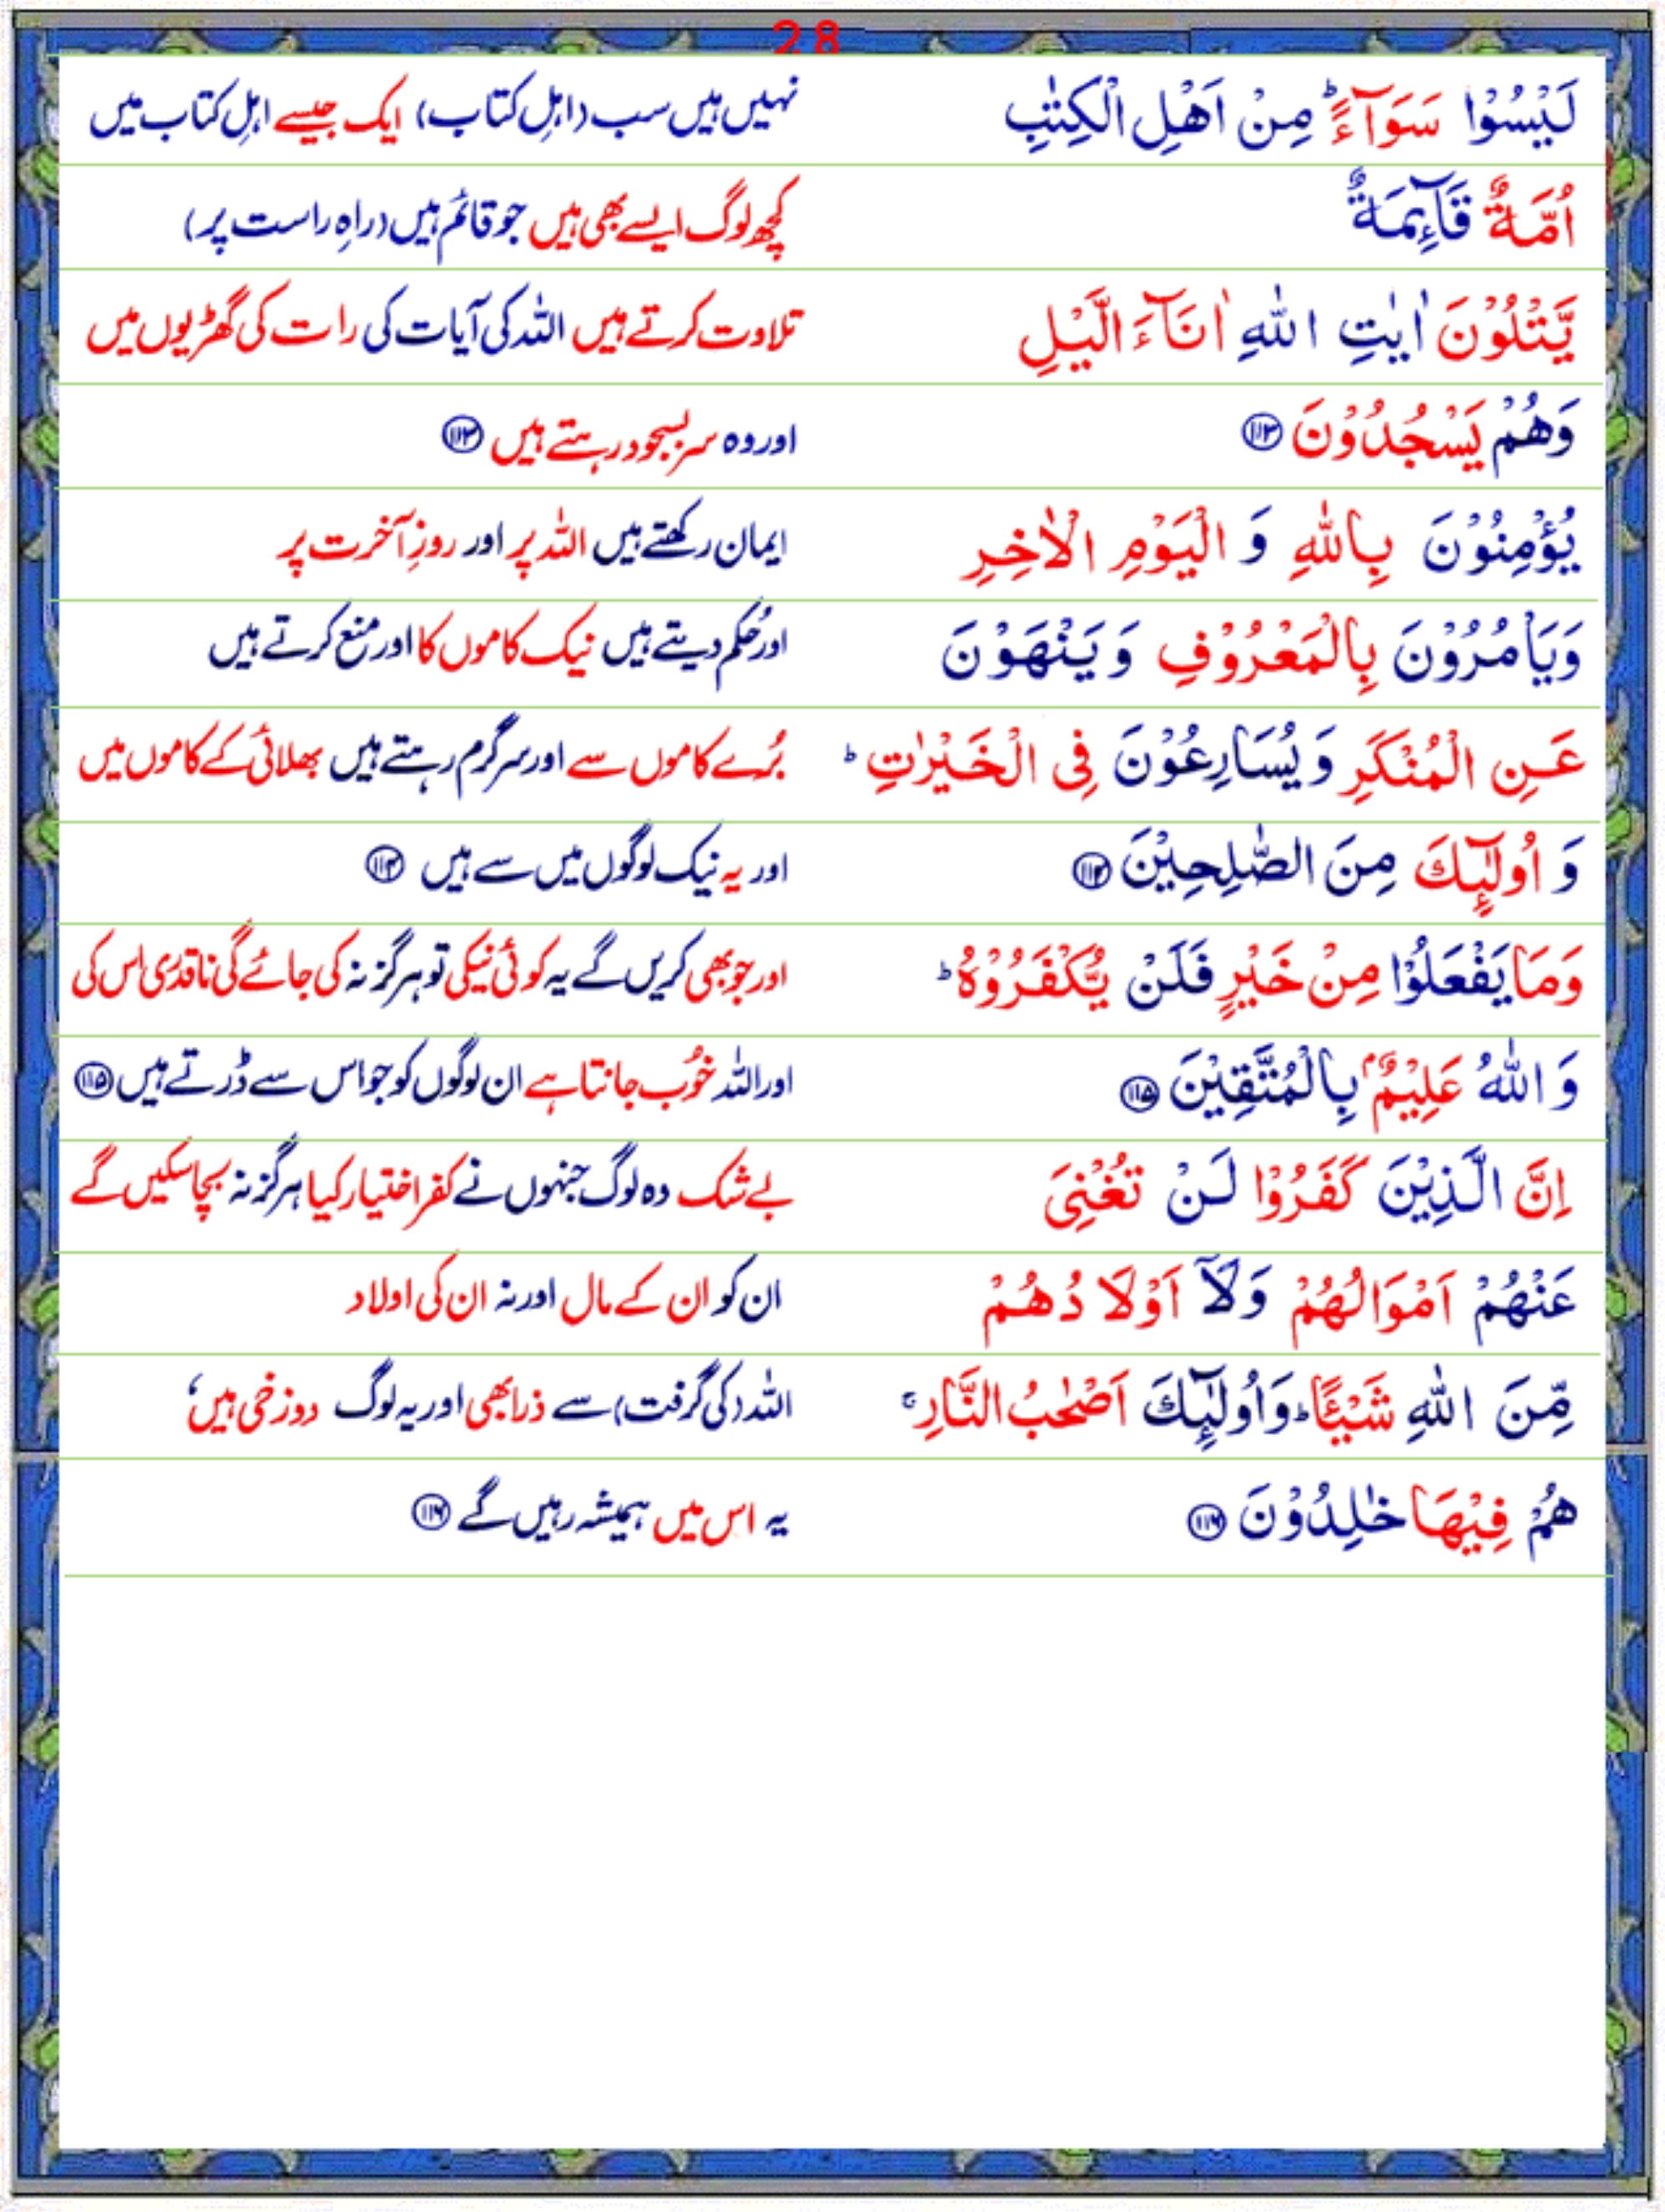 28
لَيْسُوْا سَوَآءً ؕ مِنْ اَهْلِ الْكِتٰبِ نہیں ہیں سب (اہلِ کتاب) ایک جیسے اہلِ کتاب میں
اُمَّةٌ قَآئِمَةٌ کچھ لوگ ایسے بھی ہیں جو قائم ہیں (راہِ راست پر)
يَّتْلُوْنَ اٰيٰتِ اللّٰهِ اٰنَآءَ الَّيْلِ تلاوت کرتے ہیں اللہ کی آیات کی رات کی گھڑیوں میں
وَهُمْ يَسْجُدُوْنَ ۱۱۳ اور وہ سر بسجود رہتے ہیں ۱۱۳
يُؤْمِنُوْنَ بِاللّٰهِ وَ الْيَوْمِ الْاٰخِرِ ایمان رکھتے ہیں اللہ پر اور روزِ آخرت پر
وَيَاْمُرُوْنَ بِالْمَعْرُوْفِ وَيَنْهَوْنَ اور حُکم دیتے ہیں نیک کاموں کا اور منع کرتے ہیں
عَنِ الْمُنْكَرِ وَيُسَارِعُوْنَ فِى الْخَيْرٰتِ ؕ بُرے کاموں سے اور سرگرم رہتے ہیں بھلائی کے کاموں میں
وَ اُولٰٓئِكَ مِنَ الصّٰلِحِيْنَ ۱۱۴ اور یہ نیک لوگوں میں سے ہیں ۱۱۴
وَمَا يَفْعَلُوْا مِنْ خَيْرٍ فَلَنْ يُّكْفَرُوْهُ ؕ اور جو بھی کریں گے یہ کوئی نیکی تو ہرگز نہ کی جائے گی ناقدری اس کی
وَ اللّٰهُ عَلِيْمٌۢ بِالْمُتَّقِيْنَ ۱۱۵ اور اللہ خُوب جانتا ہے ان لوگوں کو جو اس سے ڈرتے ہیں ۱۱۵
اِنَّ الَّذِيْنَ كَفَرُوْا لَنْ تُغْنِىَ بے شک وہ لوگ جنہوں نے کفر اختیار کیا ہرگز نہ بچا سکیں گے
عَنْهُمْ اَمْوَالُهُمْ وَلَآ اَوْلَادُهُمْ ان کو ان کے مال اور نہ ان کی اولاد
مِّنَ اللّٰهِ شَيْئًا ؕ وَاُولٰٓئِكَ اَصْحٰبُ النَّارِ ۚ اللہ (کی گرفت) سے ذرا بھی اور یہ لوگ دوزخی ہیں،
هُمْ فِيْهَا خٰلِدُوْنَ ۱۱۶ یہ اس میں ہمیشہ رہیں گے ۱۱۶